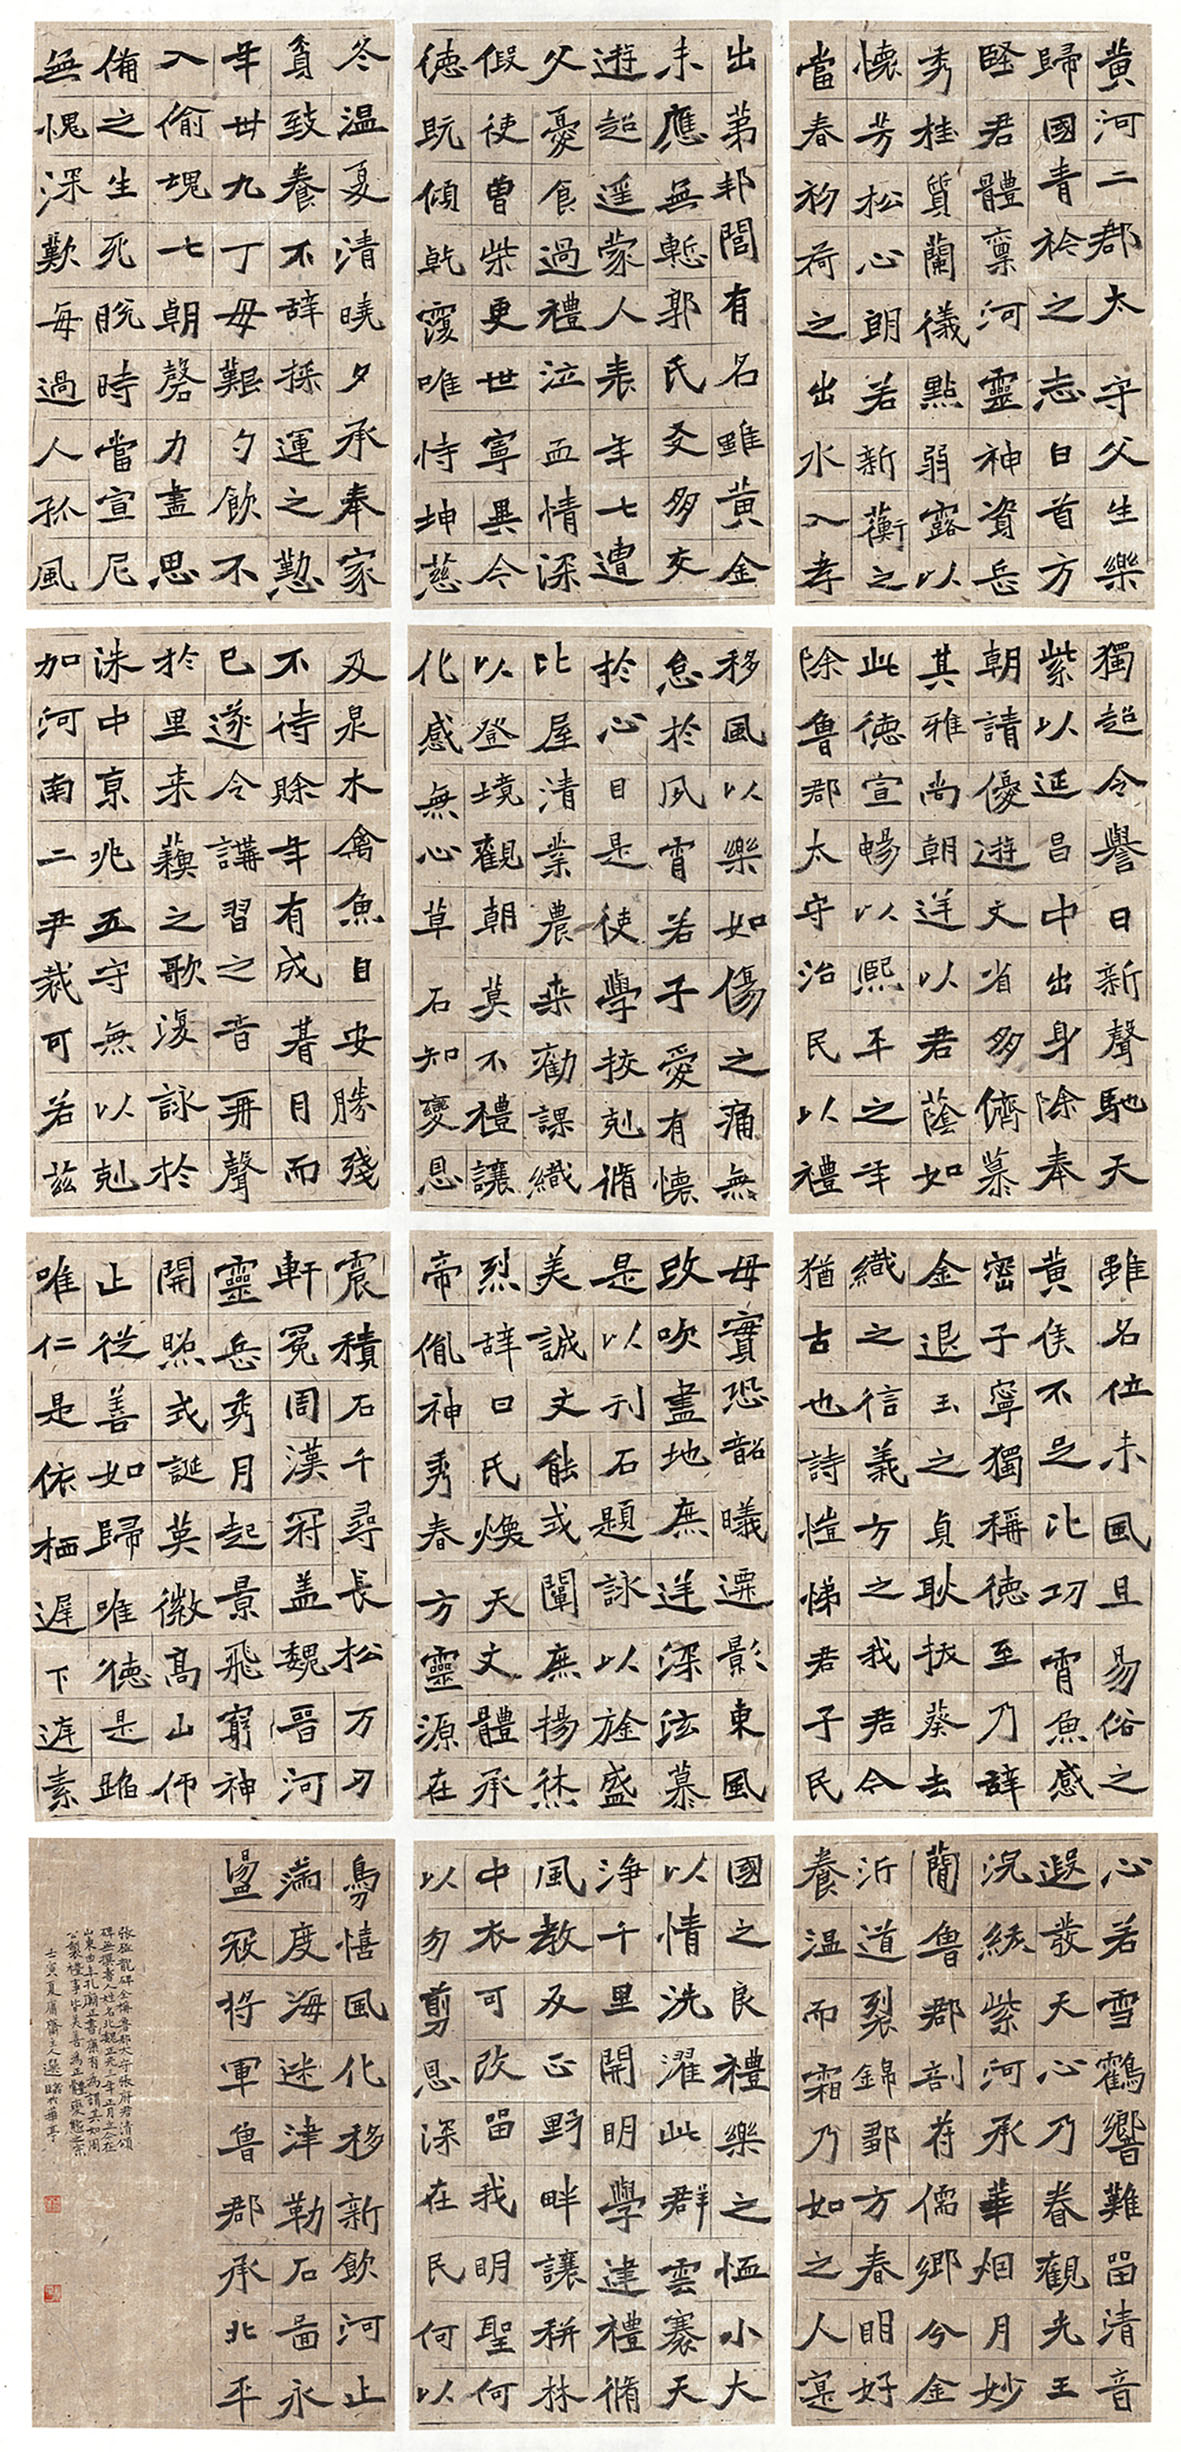 黄河二郡太守父生樂
歸國青衿之志日首方
堅君體稟河靈神資岳
秀桂質蘭儀點弱露以
懷芳松心朗若新蘅之
當春初荷之出水入孝
出第邦閭有名雖黄金
未應無慙郭氏友多交
遊超遥蒙人表年七遭
父憂食過禮泣血情深
假使曾柴更世寧異今
德既傾乾覆唯恃坤慈
冬温夏清曉夕承奉家
貧致養不辞採運之懃
年卅九丁母艱勺飲不
入偷魂七朝磬力盡思
備之生死脱時當宣尼
無愧深歎每過人孤風
獨超令譽日新聲馳天
紫以延昌中出身除奉
朝請優遊文省多儕慕
其雅尚朝廷以君蔭如
此德宣暢以熙平之年
除魯郡太守治民以禮
移風以樂如傷之痛無
怠於夙宵若子愛有懷
於心目是使學挍剋脩
比屋清業農桒勸課織
以登境觀朝莫不禮讓
化感無心草石知變恩
及泉木禽魚自安勝殘
不待賒年有成朞月而
已遂令講習之音再聲
於里来之歌復詠於
洙中京兆五守無以剋
加河南二尹裁可若兹
雖名位未風且易俗之
黄侯不足比功霄魚感
密子寧獨稱德至乃辞
金退玉之貞耿拔葵去
織之信義方之我君今
猶古也詩愷悌君子民
母實恐韶曦遷影東風
改吹盡地庶廷深泫慕
是以刊石題詠以旌盛
美誠文能式闡庶揚烋
烈辞曰氏煥天文體承
帝胤神秀春方靈源在
震積石千尋長松万刃
軒冕周漢冠盖魏晉河
靈岳秀月起景飛窮神
開照式誕英徽高山仰
止從善如歸唯德是蹈
唯仁是依栖遲下庭素
心若雪鶴響難留清音
遐發天心乃眷觀光王
況綬紫河承華烟月妙
蕳魯郡剖苻儒鄉今金
沂道裂錦鄒方春明好
養温而霜乃如之人寔
國之良禮樂之恤小大
以情洗濯此群雲褰天
浄千里開明學建禮脩
風教反正野畔讓耕林
中衣可改留我明聖何
以勿剪恩深在民何以
鳥憘風化移新飲河止
滿度海迷津勒石啚永
盪寇将軍魯郡承北平
張猛龍碑全稱魯郡太守張府君清頌
碑無撰書人姓名北魏正光三年正月立今在
山東曲阜孔廟正書康有為謂其如周
公製禮事皆美善為正體變態之宗
壬寅夏庸齋主人選臨於華亭